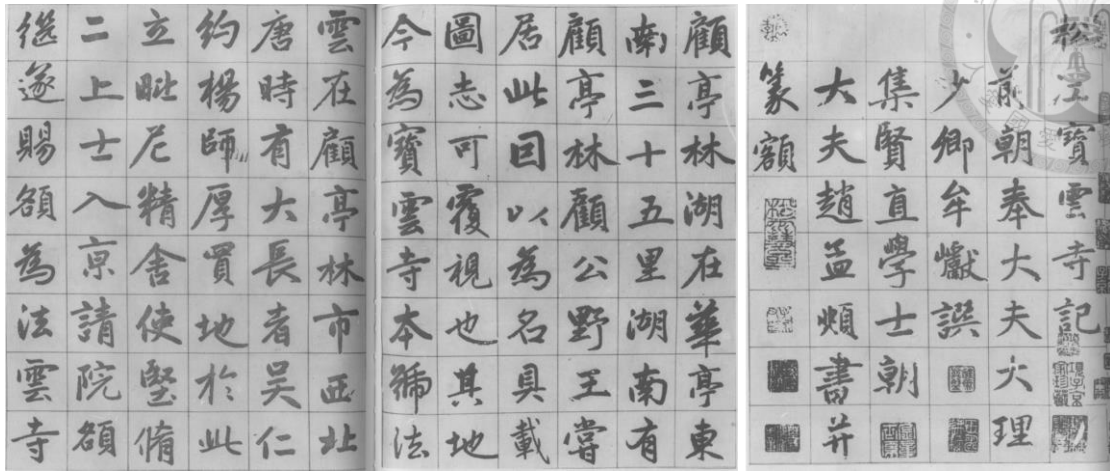 松寶雲寺記
前朝奉大夫大理
少卿牟巘譔
集賢直學士朝
大夫趙孟頫書并
篆額
顧亭林湖在華亭東
南三十五里湖南有
顧亭林顧公野王嘗
居此囙以為名具載
圖志可覆視也其地
今為寶雲寺本號法
雲在顧亭林市西北
唐時有大長者吳仁
約楊師厚買地於此
立毗尼精舍使堅脩
二上士入京請院頟
繼遂賜頟為法雲寺